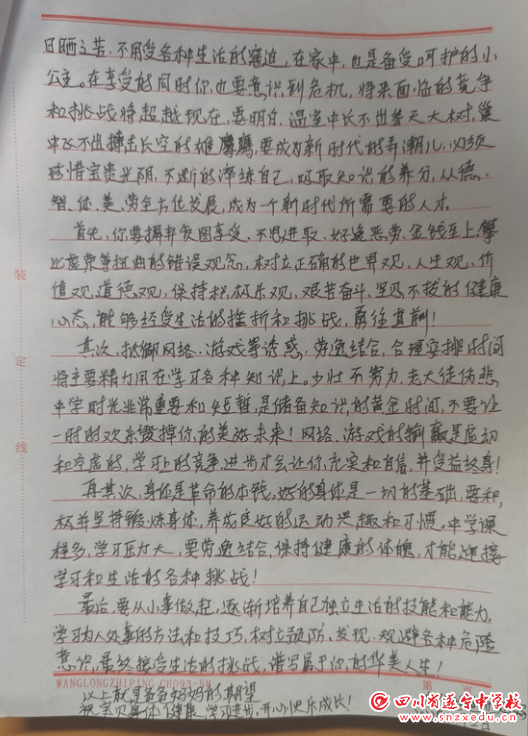 日晒之苦,不用受各种生活的窘迫,在家中,也是备受呵护的小
公主。在享受的同时你也要意识到危机,将来面临的竞争
和挑战将超越现在,要明白,温室中长不出参天大树,巢
中飞不出搏击长空的雄鹰,要成为新时代的弄潮儿,必须
珍惜宝贵光阴,不断的淬练自己,吸取知识的养分,从德、
智、体、美、劳全方位发展,成为一个新时代所需要的人才。
首先,你要摒弃贪图享受、不思进取、好逸恶劳、金钱至上、攀
比虚荣等扭曲的错误观念,树立正确的世界观,人生观、价
值观,道德观,保持积极乐观、艰苦奋斗、坚忍不拔的健康
心态,能够经受生活的挫折和挑战,勇往直前!
其次,抵御网络、游戏等诱惑,劳逸结合,合理安排时间
将主要精力用在学习各种知识上。少壮不努力,老大徒伤悲,
中学时光非常重要和短暂,是储备知识的黄金时间,不要让
一时的欢乐毁掉你的美好未来!网络、游戏的输赢是虚幻
和空虚的,学习上的竞争、进步才会让你充实和自信,并受益终身!
再其次,身体是革命的本钱。好的身体是一切的基础,要积
极并坚持锻炼身体,养成良好的运动兴趣和习惯。中学课
程多,学习压力大,要劳逸结合,保持健康的体魄,才能迎接
学习和生活的各种挑战!
最后,要从小事做起,逐渐培养自己独立生活的技能和能力,
学习为人处事的方法和技巧,树立预防、发现、规避各种危险
意识,最终接受生活的挑战,谱写属于你的华美人生!
WANGLONGZHIPING CH093-68 第
以上就是爸爸妈妈的期望
祝宝贝身体健康,学习进步,开心快乐成长!
四川省遂宁中学校
www.snzxez.net
装
定
线